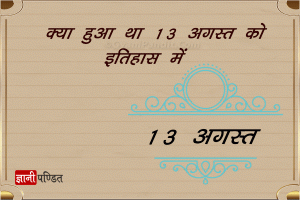 क्या हुआ था 13 अगस्त को
इतिहास में
13 अगस्त
ज्ञानीपण्डित